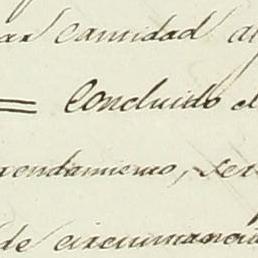 ar cantidad al
= Concluido el
rendamiento, ser
de circunstancia